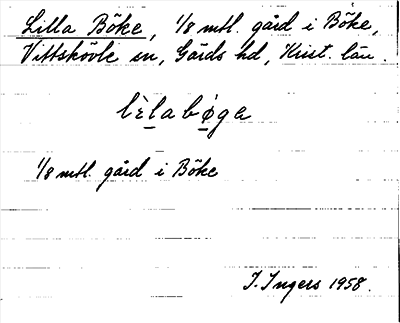 Lilla Böke, 1/8 mtl. gård i Böke,
Vittskövle sn, Gärds hd, Krist. län.
lèlabøga
1/8 mtl. gård i Böke
I. Ingers 1958.